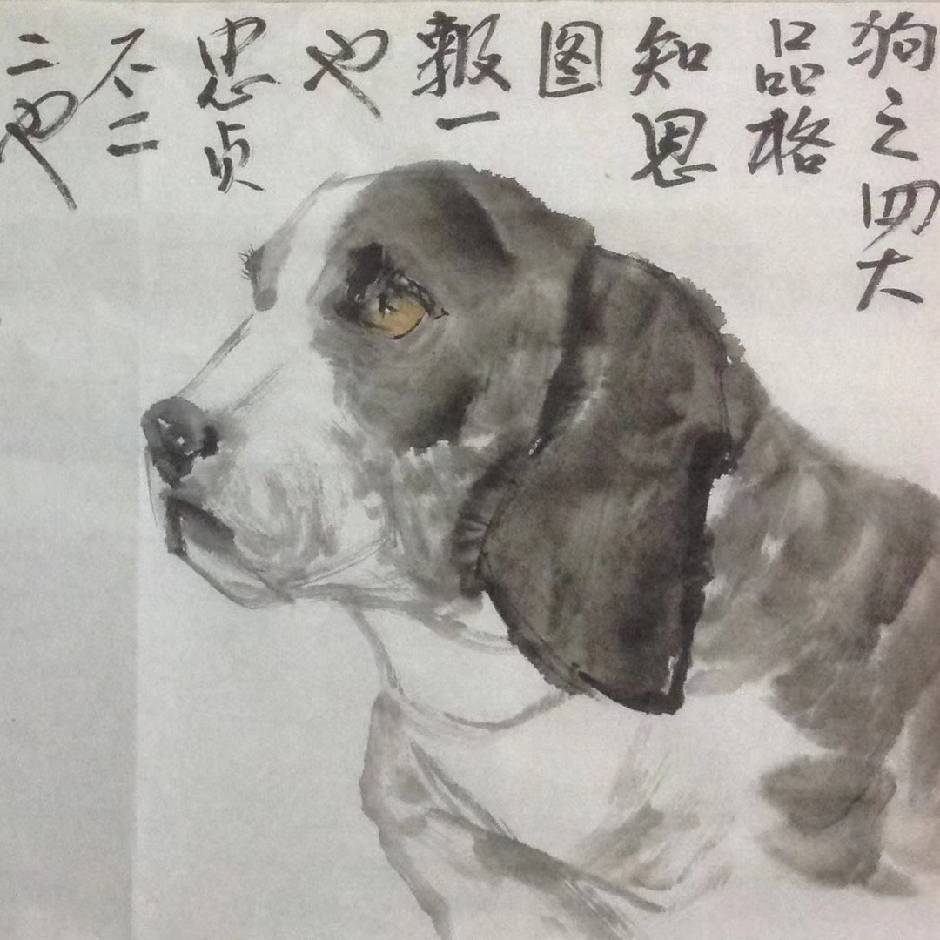 狗之四大
品格
知恩
图
報一
也
忠贞
不二
二也